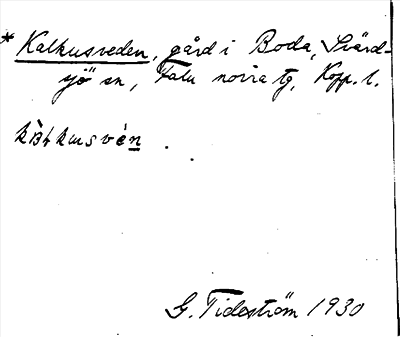 * Kalkusveden, gård i Boda, Svärd-
sjö sn, Falu norra tg, Kopp. l.
G. Tideström 1930